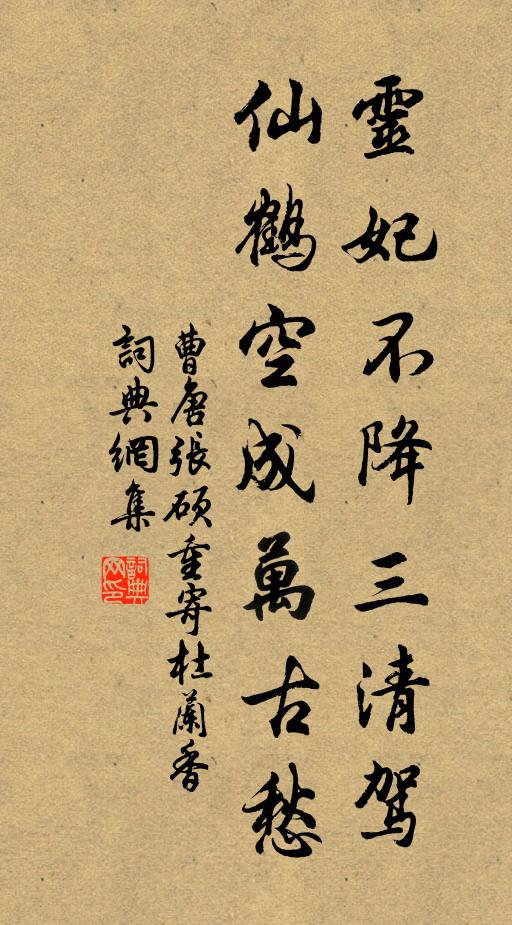 靈妃不降三清駕
仙鶴空成萬古愁
曹唐張碩重寄杜蘭香
詞典網集
詞典網印